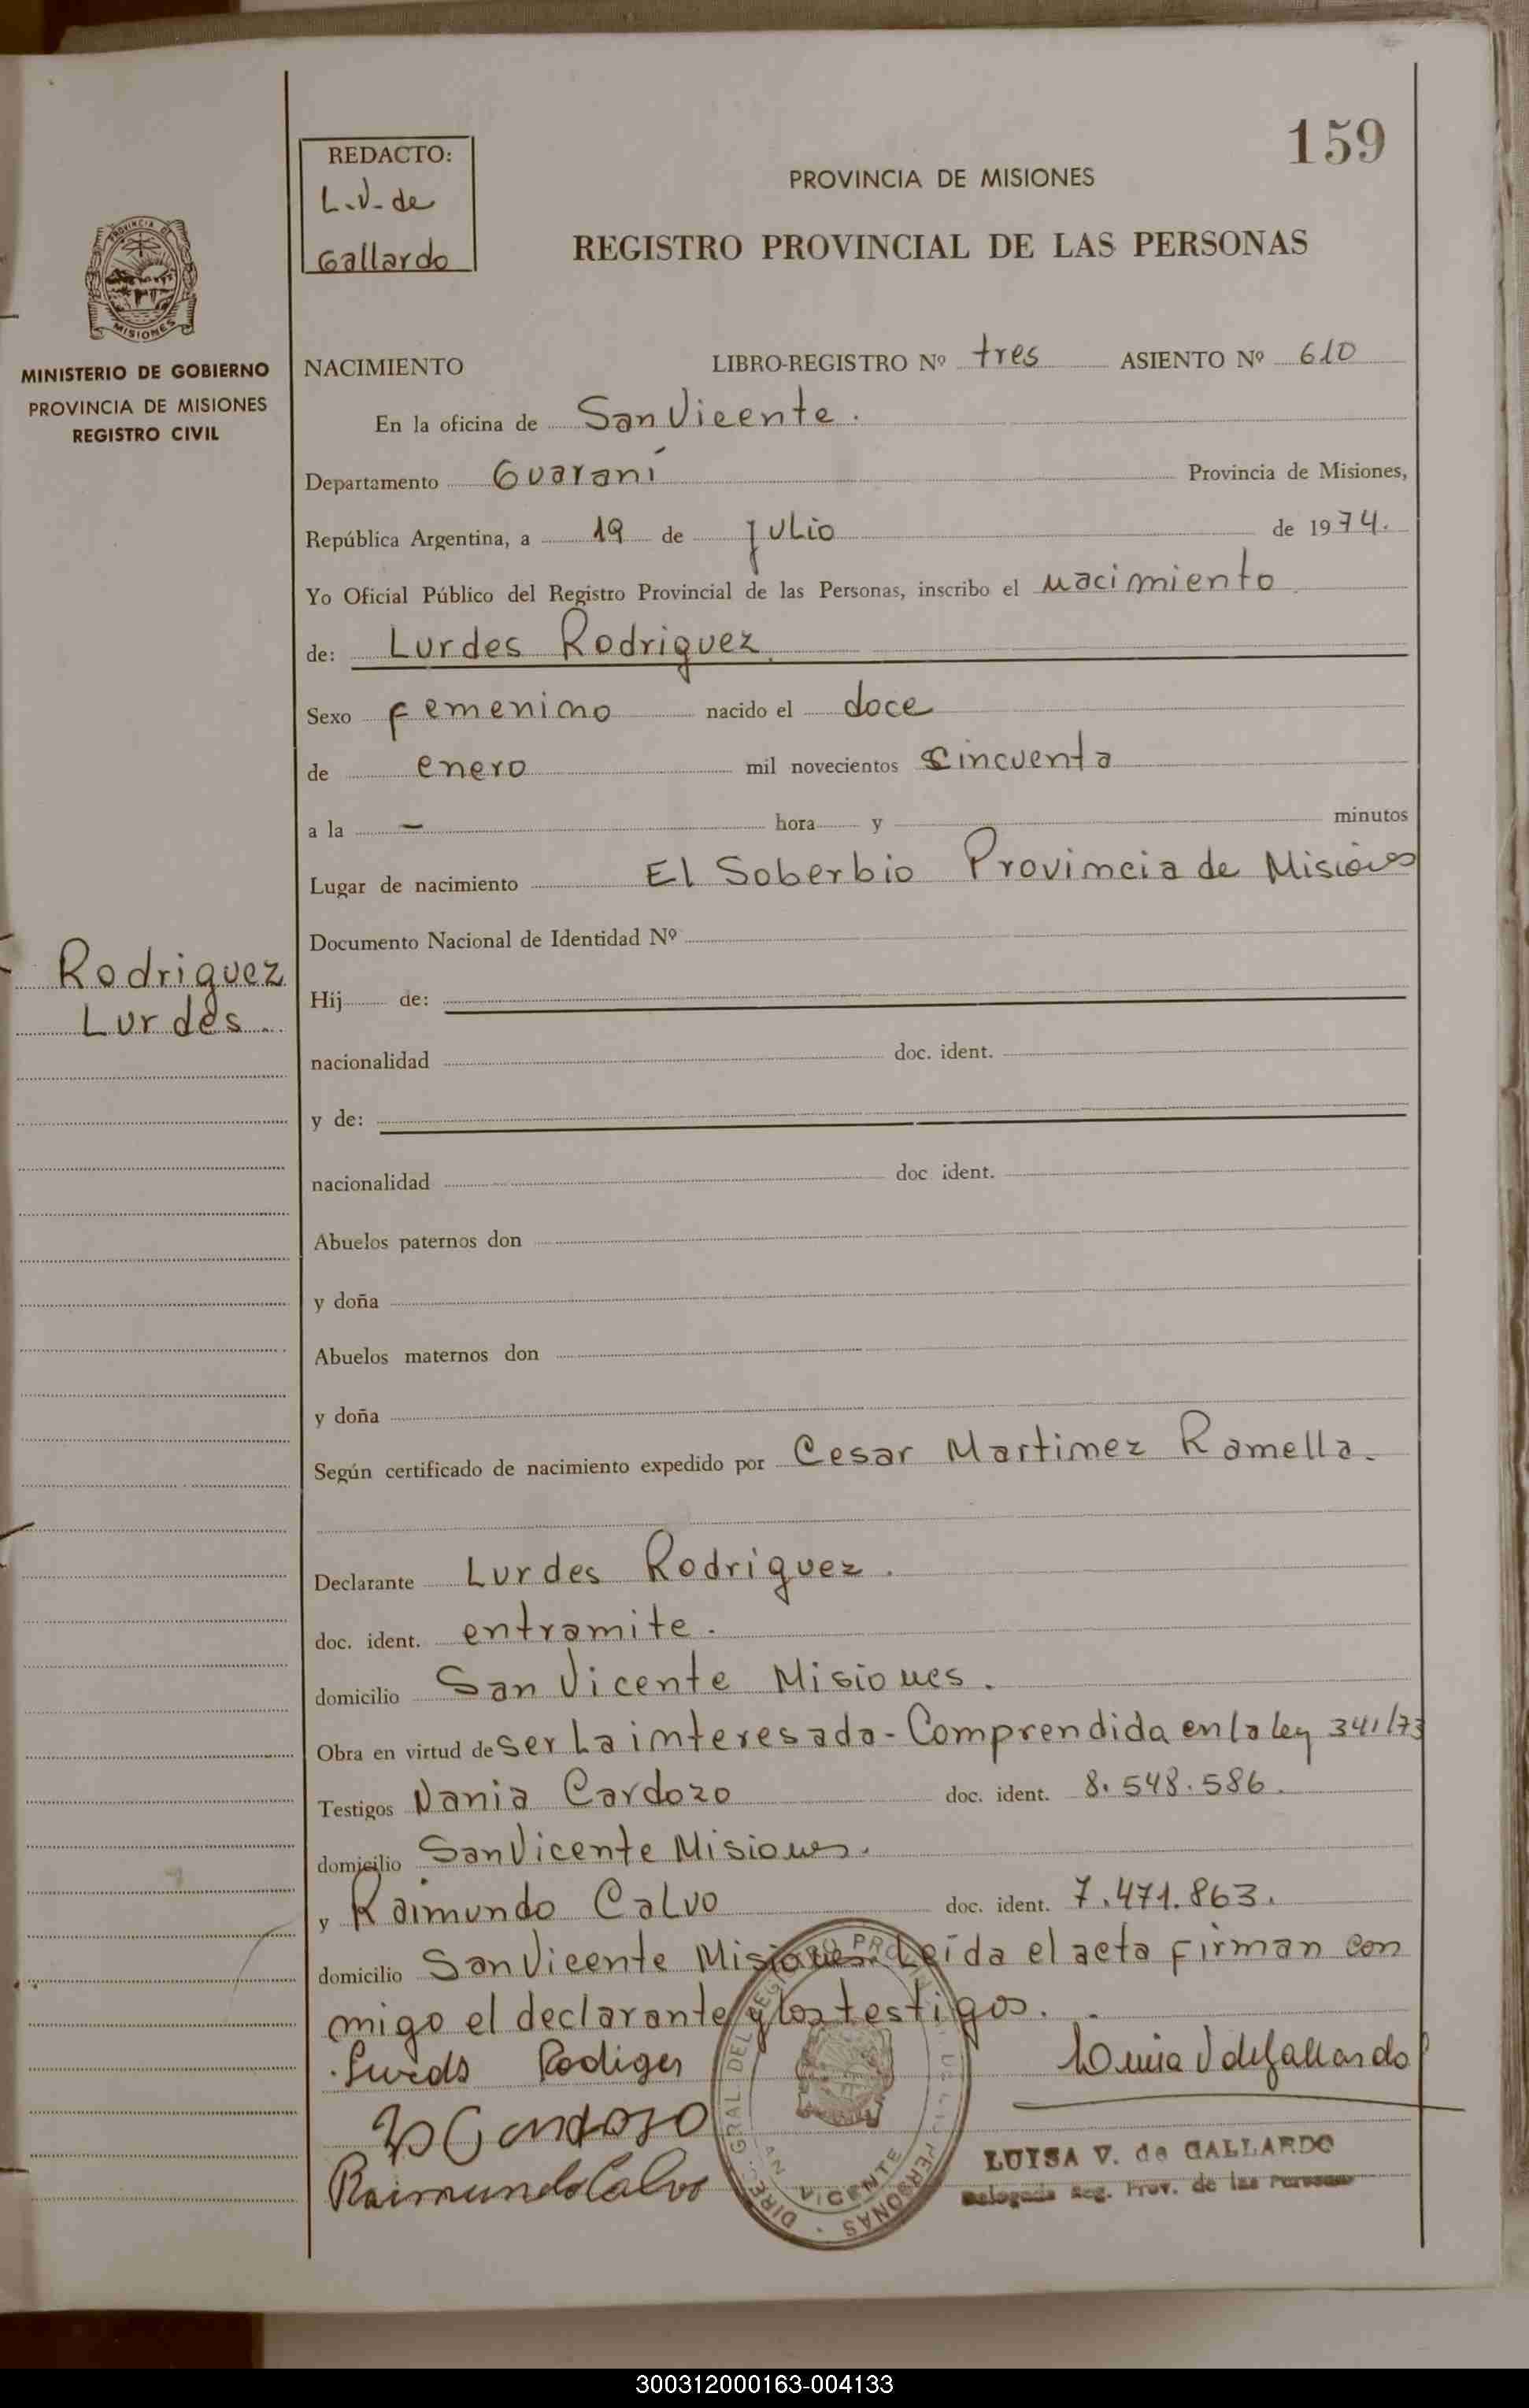 159
REDACTO:
L.V. de
Gallardo
PROVINCIA DE MISIONES
REGISTRO PROVINCIAL DE LAS PERSONAS
MISIONES
MINISTERIO DE GOBIERNO
PROVINCIA DE MISIONES
REGISTRO CIVIL
NACIMIENTO LIBRO-REGISTRO Nº tres ASIENTO Nº 610
En la oficina de San Vicente.
Departamento Guaraní Provincia de Misiones,
República Argentina, a 19 de julio de 1974.
Yo Oficial Público del Registro Provincial de las Personas, inscribo el nacimiento
de: Lurdes Rodriguez
Sexo femenino nacido el doce
de enero mil novecientos cincuenta
a la - hora y minutos
Lugar de nacimiento El Soberbio Provincia de Misiones
Documento Nacional de Identidad Nº
Rodriguez
Lurdes
Hij de:
nacionalidad doc. ident.
y de:
nacionalidad doc ident.
Abuelos paternos don
y doña
Abuelos maternos don
y doña
Según certificado de nacimiento expedido por Cesar Martinez Ramella.
Declarante Lurdes Rodriguez.
doc. ident. entramite.
domicilio San Vicente Misiones.
Obra en virtud de ser la interesada - Comprendida en la ley 341/73
Testigos Nania Cardozo doc. ident. 8.548.586.
domicilio San Vicente Misiones.
y Raimundo Calvo doc. ident. 7.471.863.
domicilio San Vicente Misiones. Leída el acta firman con
migo el declarante y los testigos.
Rodiges
Luisa V de Gallardo
Cardozo
Raimundo Calvo
DIREC. GRAL DEL REGISTRO PROVINCIAL DE LAS PERSONAS
SAN VICENTE
LUISA V. de GALLARDO
Delegada Reg. Prov. de las Personas
300312000163-004133